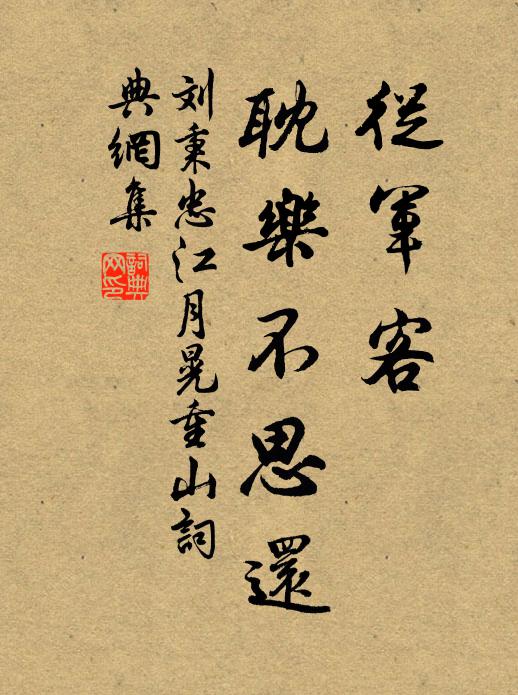 從軍客
耽樂不思還
刘秉忠江月晃重山詞
典網集
詞典
网印